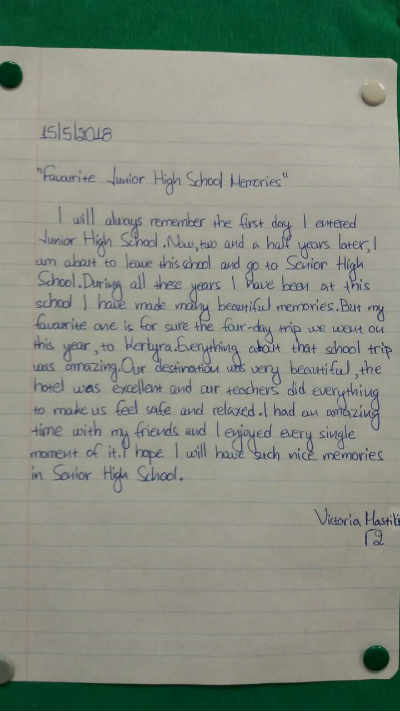 15/5/2018
"Favourite Junior High School Memories"
I will always remember the first day I entered
Junior High School. Now, two and a half years later, I
am about to leave this school and go to Senior High
School. During all these years I have been at this
school I have made many beautiful memories. But my
favourite one is for sure the four-day trip we went on
this year, to Kerkyra. Everything about that school trip
was amazing. Our destination was very beautiful, the
hotel was excellent and our teachers did everything
to make us feel safe and relaxed. I had an amazing
time with my friends and I enjoyed every single
moment of it. I hope I will have such nice memories
in Senior High School.
Victoria
Γ2